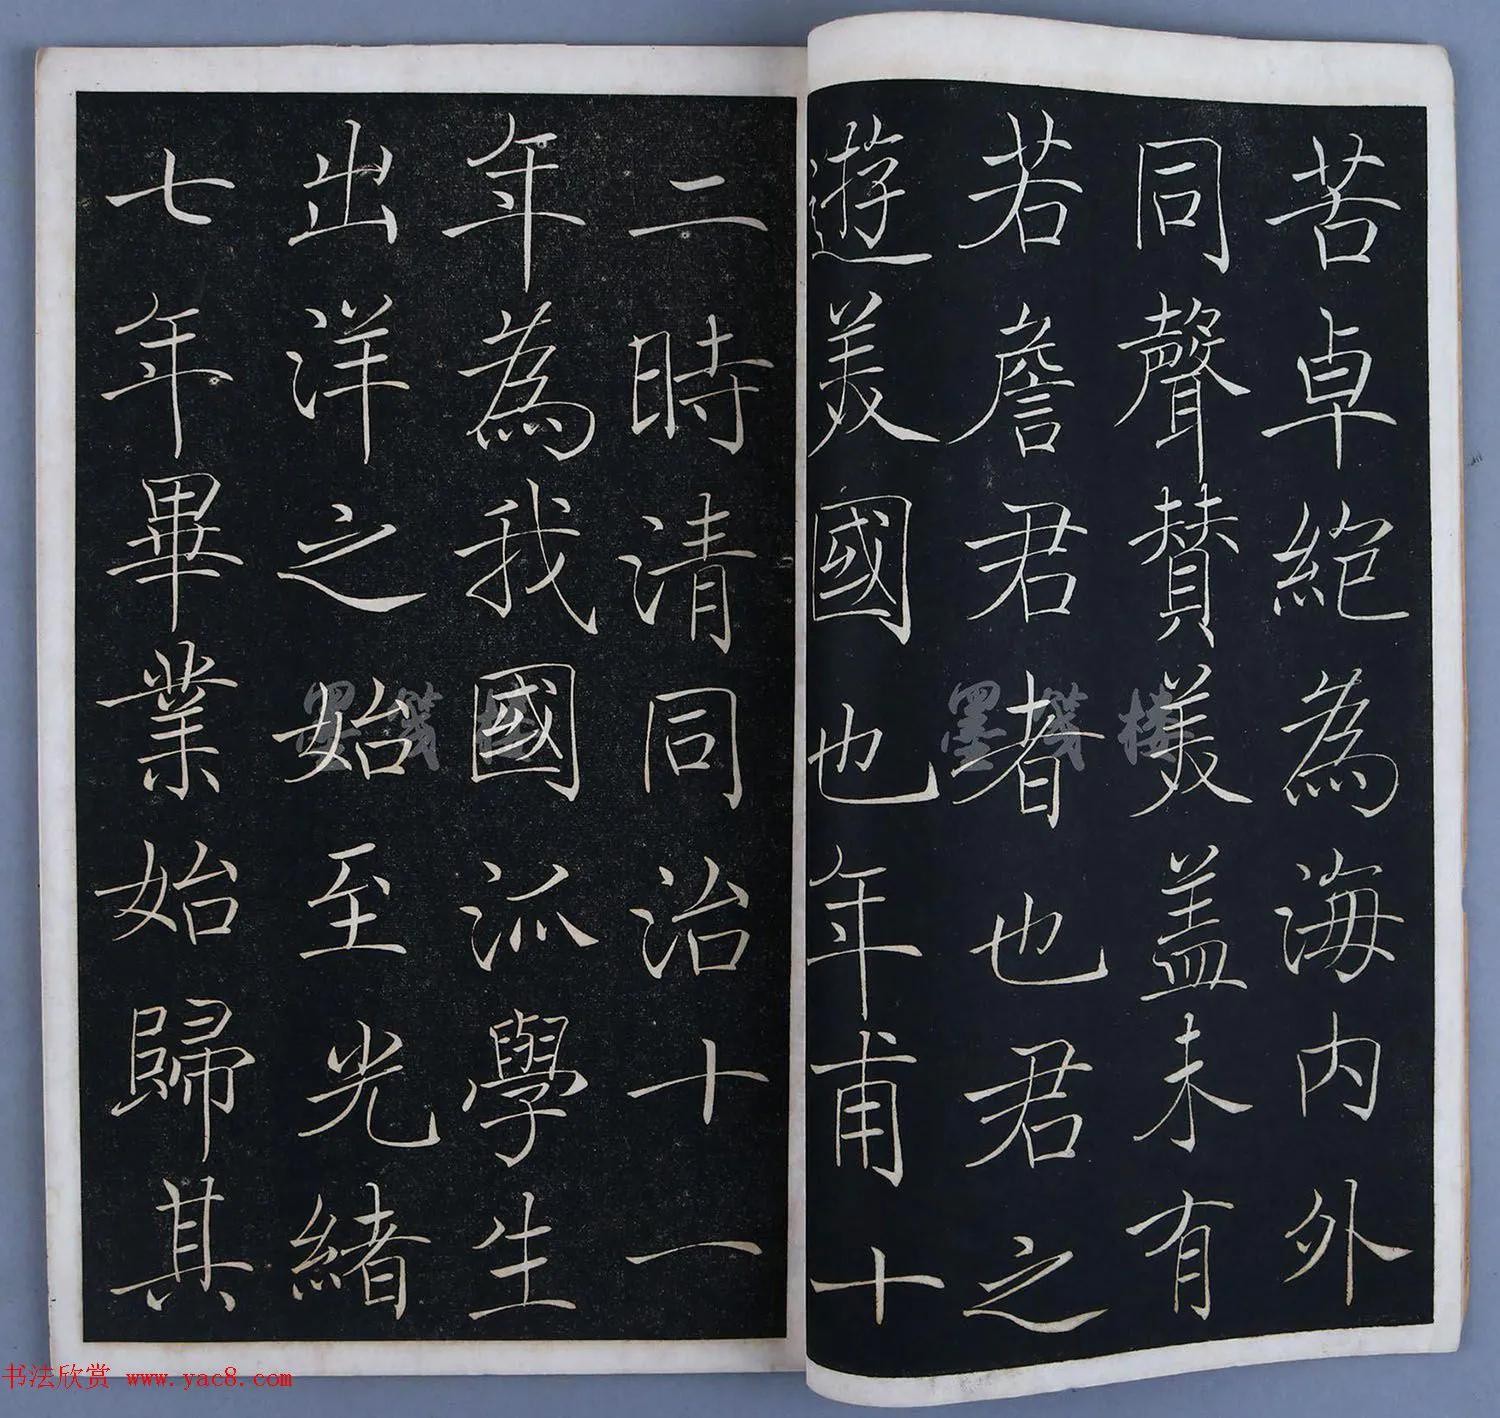 苦卓絶為海内外
同聲賛美盖未有
若詹君者也君之
遊美國也年甫十
二時清同治十一
年為我國派學生
出洋之始至光緒
七年畢業始歸其
墨箋楼
墨箋楼
书法欣赏 www.yac8.com